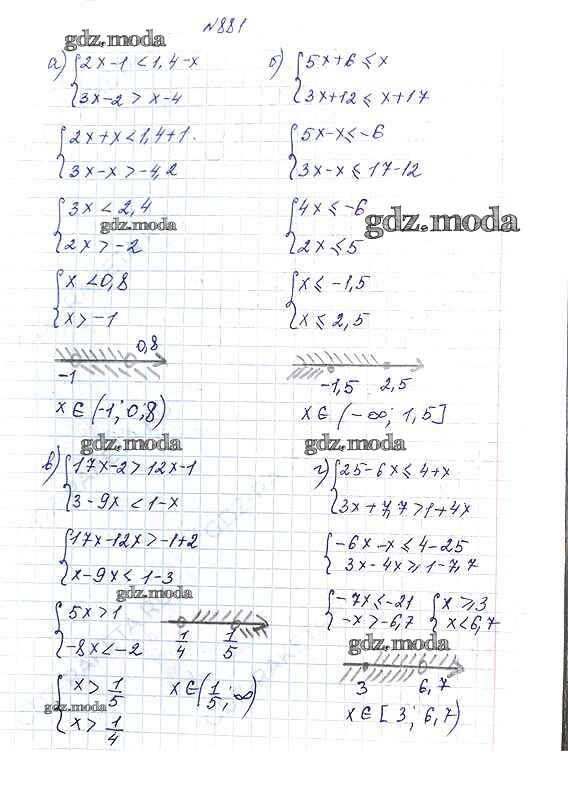 №881
gdz.moda
а) { 2x-1 < 1,4-x
3x-2 > x-4
{ 2x+x < 1,4+1
3x-x > -4,2
{ 3x < 2,4
gdz.moda
2x > -2
{ x < 0,8
x > -1
0,8
-1
x ∈ (-1; 0,8)
б) { 5x+6 ≤ x
3x+12 ≤ x+17
{ 5x-x ≤ -6
3x-x ≤ 17-12
{ 4x ≤ -6
gdz.moda
2x ≤ 5
{ x ≤ -1,5
x ≤ 2,5
-1,5 2,5
x ∈ (-∞; 1,5]
gdz.moda
в) { 17x-2 > 12x-1
3-9x < 1-x
{ 17x-12x > -1+2
x-9x < 1-3
gdz.moda
{ 5x > 1
-8x < -2
1/4 1/5
{ x > 1/5
gdz.moda
x > 1/4
x ∈ (1/5; ∞)
gdz.moda
г) { 25-6x ≤ 4+x
3x+7,7 > 1+4x
{ -6x-x ≤ 4-25
3x-4x ≥ 1-7,7
{ -7x ≤ -21 { x ≥ 3
-x > -6,7 x < 6,7
gdz.moda
3 6,7
x ∈ [3; 6,7)